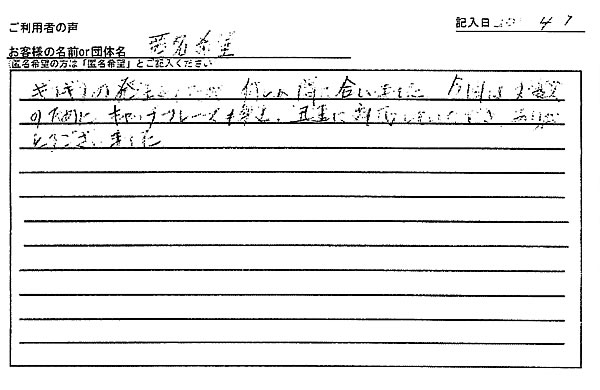 ご利用者の声
記入日 4 7
お客様の名前or団体名 匿名希望
(匿名希望の方は「匿名希望」とご記入ください
ギリギリの発注 何とか間に合いました 今回は
のために、キャッチフレーズも 丁重に 対応していただき、ありが
とうございました